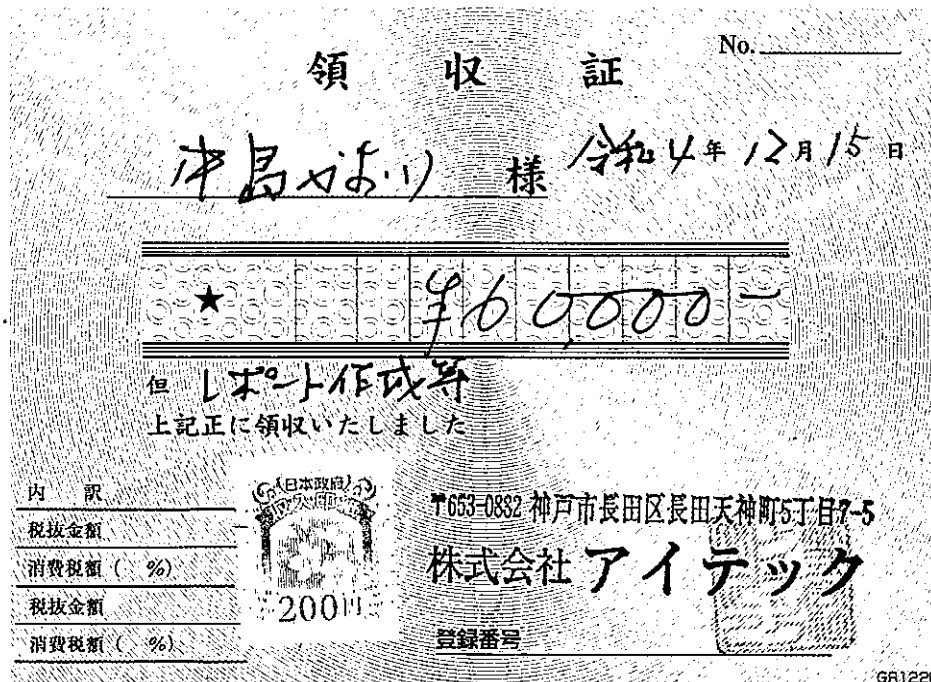 No.
領収証
中島かおり 様 令和4年12月15日
★ ¥60,000-
但 レポート作成等
上記正に領収いたしました
内訳
税抜金額
消費税額( %)
税抜金額
消費税額( %)
日本政府
200円
〒653-0882 神戸市長田区長田天神町5丁目7-5
株式会社 アイテック
登録番号